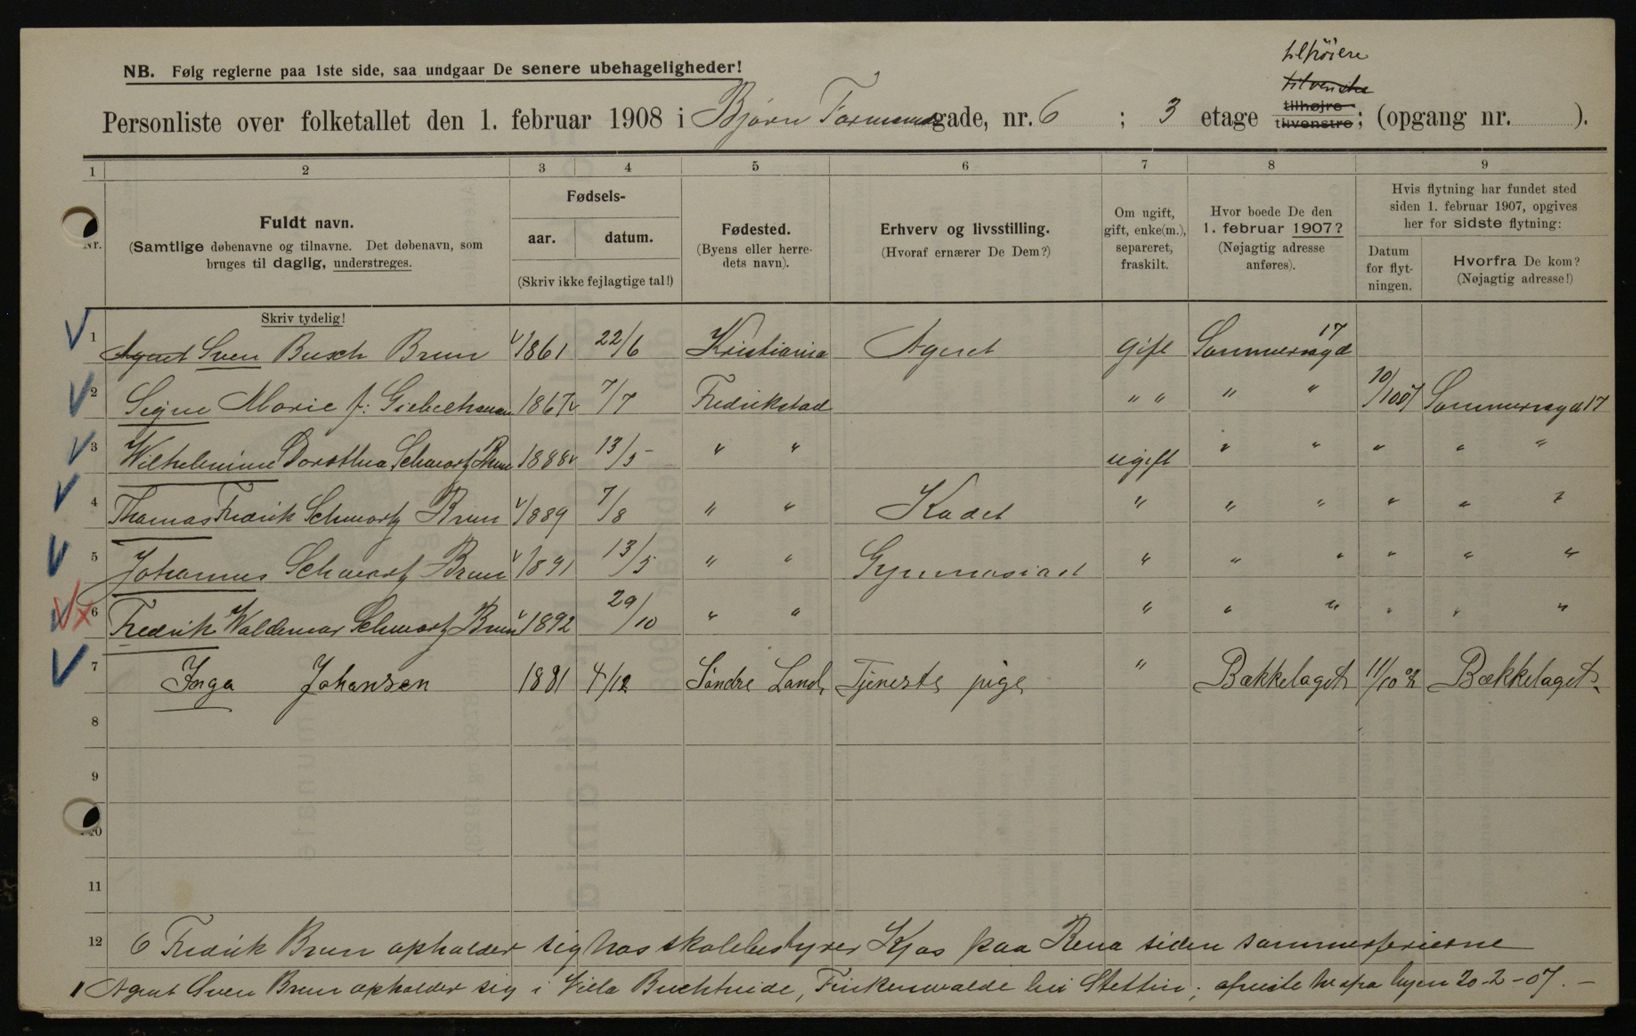 NB. Følg reglerne paa 1ste side, saa undgaar De senere ubehageligheder!
tilhöire
tilvenstre
Personliste over folketallet den 1. februar 1908 i Bjørn Farmanns gade, nr. 6 ; 3 etage tilhøjre tilvenstre; (opgang nr. ).
1 2 3 4 5 6 7 8 9
Nr.
Fuldt navn.
(Samtlige døbenavne og tilnavne. Det døbenavn, som
bruges til daglig, understreges.
Skriv tydelig!
Fødsels-
aar. datum.
(Skriv ikke fejlagtige tal!)
Fødested.
(Byens eller herre-
dets navn).
Erhverv og livsstilling.
(Hvoraf ernærer De Dem?)
Om ugift,
gift, enke(m.),
separeret,
fraskilt.
Hvor boede De den
1. februar 1907?
(Nøjagtig adresse
anføres).
Hvis flytning har fundet sted
siden 1. februar 1907, opgives
her for sidste flytning:
Datum
for flyt-
ningen.
Hvorfra De kom?
(Nøjagtig adresse!)
1 Agent Sven Busch Brun 1861 22/6 Kristiania Agent gift Sommersgd 17
2 Signe Marie f: Giebelhausen 1867 7/7 Fredrikstad " " " " 10/10 07 Sommersgd 17
3 Wilhelmine Dorothea Schwartz Brun 1888 13/5 " " ugift " " " " "
4 Thomas Fredrik Schwartz Brun 1889 7/8 " " Kadet " " " " " "
5 Johannes Schwartz Brun 1891 13/5 " " Gymnasiast " " " " " "
6 Fredrik Waldemar Schwartz Brun 1892 29/10 " " " " " " " "
7 Inga Johansen 1881 4/12 Söndre Land Tjeneste pige " Bækkelaget 11/10 Bækkelaget
8
9
10
11
12 6 Fredrik Brun opholder sig hos skolebestyrer Kjos paa Rena siden sommerferierne
1 Agent Sven Brun opholder sig i Villa Buchheide, Finkenwalde bei Stettin; afreiste herfra byen 20-2-07. -